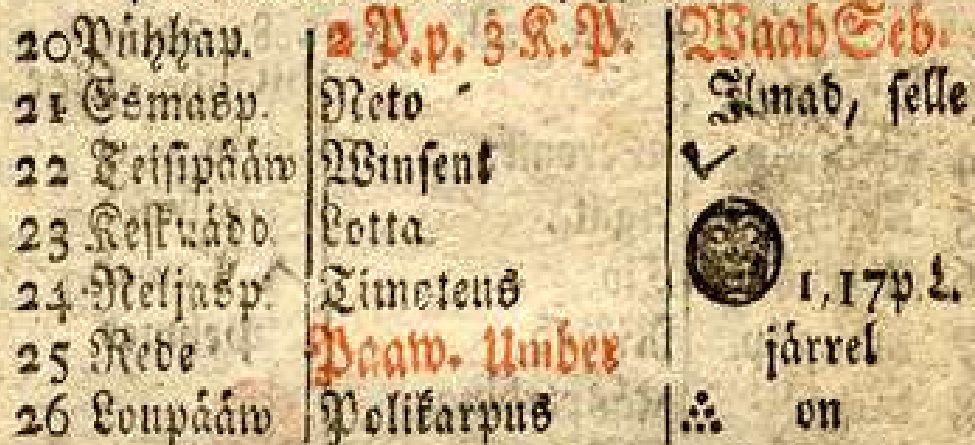 20 Pühhap. 2 P. p. 3 K. P. Waab Seb.
21 Esmasp. Neto Ilmad, selle
22 Teisipääw Winsent
23 Kesknädd. Lotta
24 Neljasp. Timoteus 1,17 p. L.
25 Rede Paaw. Umber järrel
26 Loupääw Polikarpus on